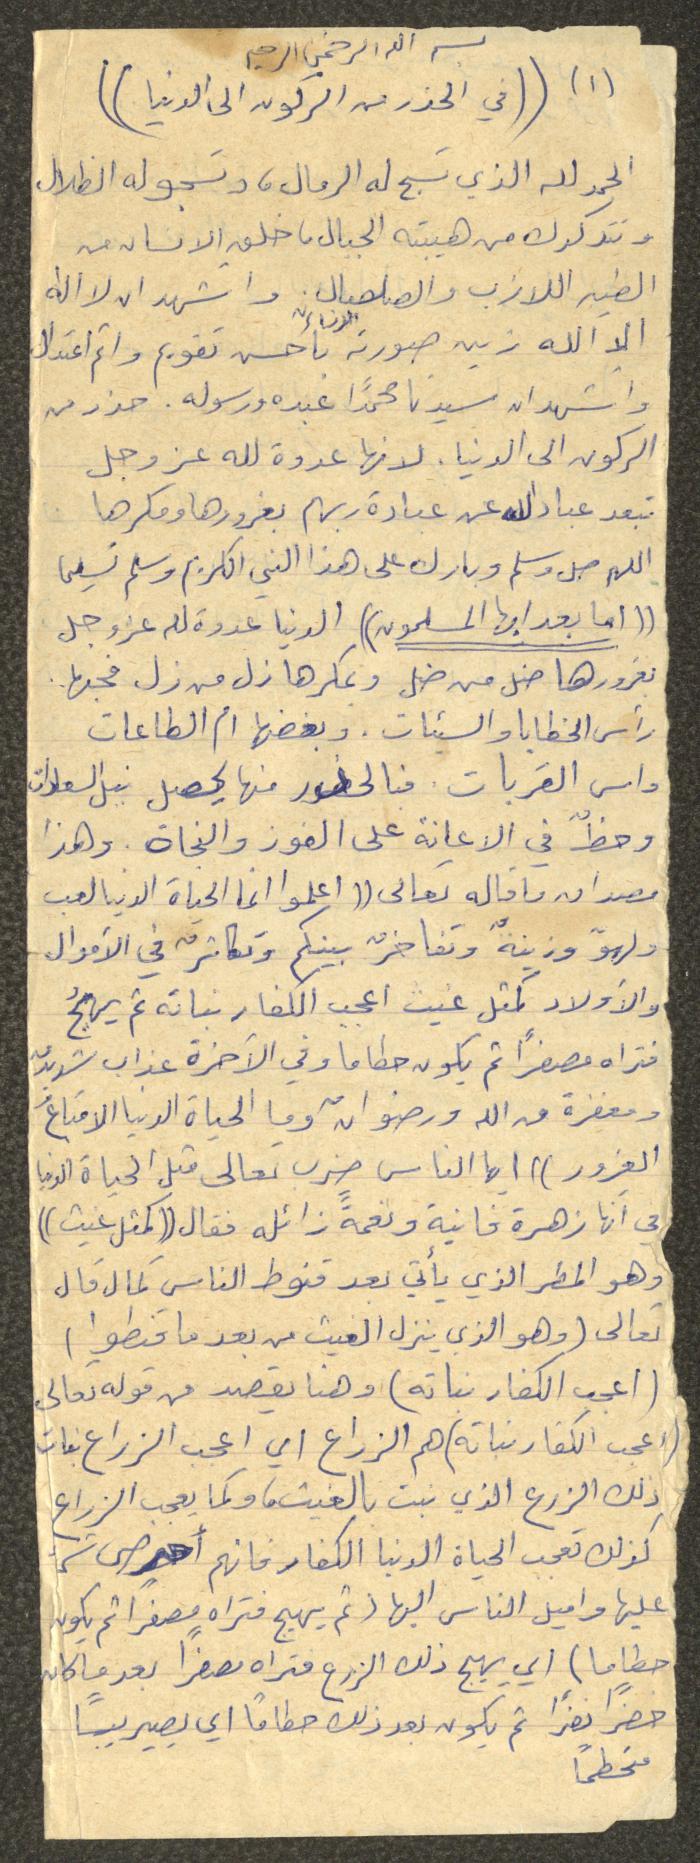 بسم الله الرحمن الرحيم
(١) ((في الحذر من الركون الى الدنيا))
الحمد لله الذي تسبح له الرمال، وتسجد له الظلال
وتتدكدك من هيبته الجبال، خلق الانسان من
الطين اللازب والصلصال. واشهد ان لا اله
الا الله زين صورته بأحسن تقويم واتم اعتدال
واشهد ان سيدنا محمدًا عبده ورسوله. حذر من
الركون الى الدنيا. لانها عدوة لله عز وجل
تبعد عباد الله عن عبادة ربهم بغرورها ومكرها
اللهم صل وسلم وبارك على هذا النبي الكريم وسلم تسليما
((اما بعد ايها المسلمون)) الدنيا عدوة لله عز وجل
بغرورها ضل من ضل وبمكرها زل من زل فحبها
رأس الخطايا والسيئات. وبغضها ام الطاعات
واس القربات. منها يحصل نيل السعادات
وحظٌ في الاعانة على الفوز والنجاة. وهذا
مصداق ما قاله تعالى ((اعلموا انما الحياة الدنيا لعب
ولهوٌ وزينةٌ وتفاخرٌ بينكم وتكاثرٌ في الأموال
والأولاد كمثل غيث اعجب الكفار نباته ثم يهيجُ
فتراه مصفرًا ثم يكون حطاما وفي الآخرة عذاب شديدٌ
ومغفرة من الله ورضوانٌ وما الحياة الدنيا الا متاعُ
الغرور)) ايها الناس ضرب تعالى مثل الحياة الدنيا
في أنها زهرة فانية ونعمةً زائله فقال ((كمثل غيث))
وهو المطر الذي يأتي بعد قنوط الناس كمال قال
تعالى (وهو الذي ينزل الغيث من بعد ما قنطوا)
(اعجب الكفار نباته) وهنا يقصد من قوله تعالى
(اعجب الكفار نباته) هم الزراع اي اعجب الزراع نبات
ذلك الزرع الذي نبت بالغيث، وكما يعجب الزراع
كذلك تعجب الحياة الدنيا الكفار فانهم أحرص شيء
عليها واميل الناس اليها (ثم يهيج فتراه مصفرًا ثم يكون
حطاما) اي يهيج ذلك الزرع فتراه مصفرًا بعد ما كان
خضرًا نضرًا ثم يكون بعد ذلك حطامًا اي يصير يبسًا
متحطمًا